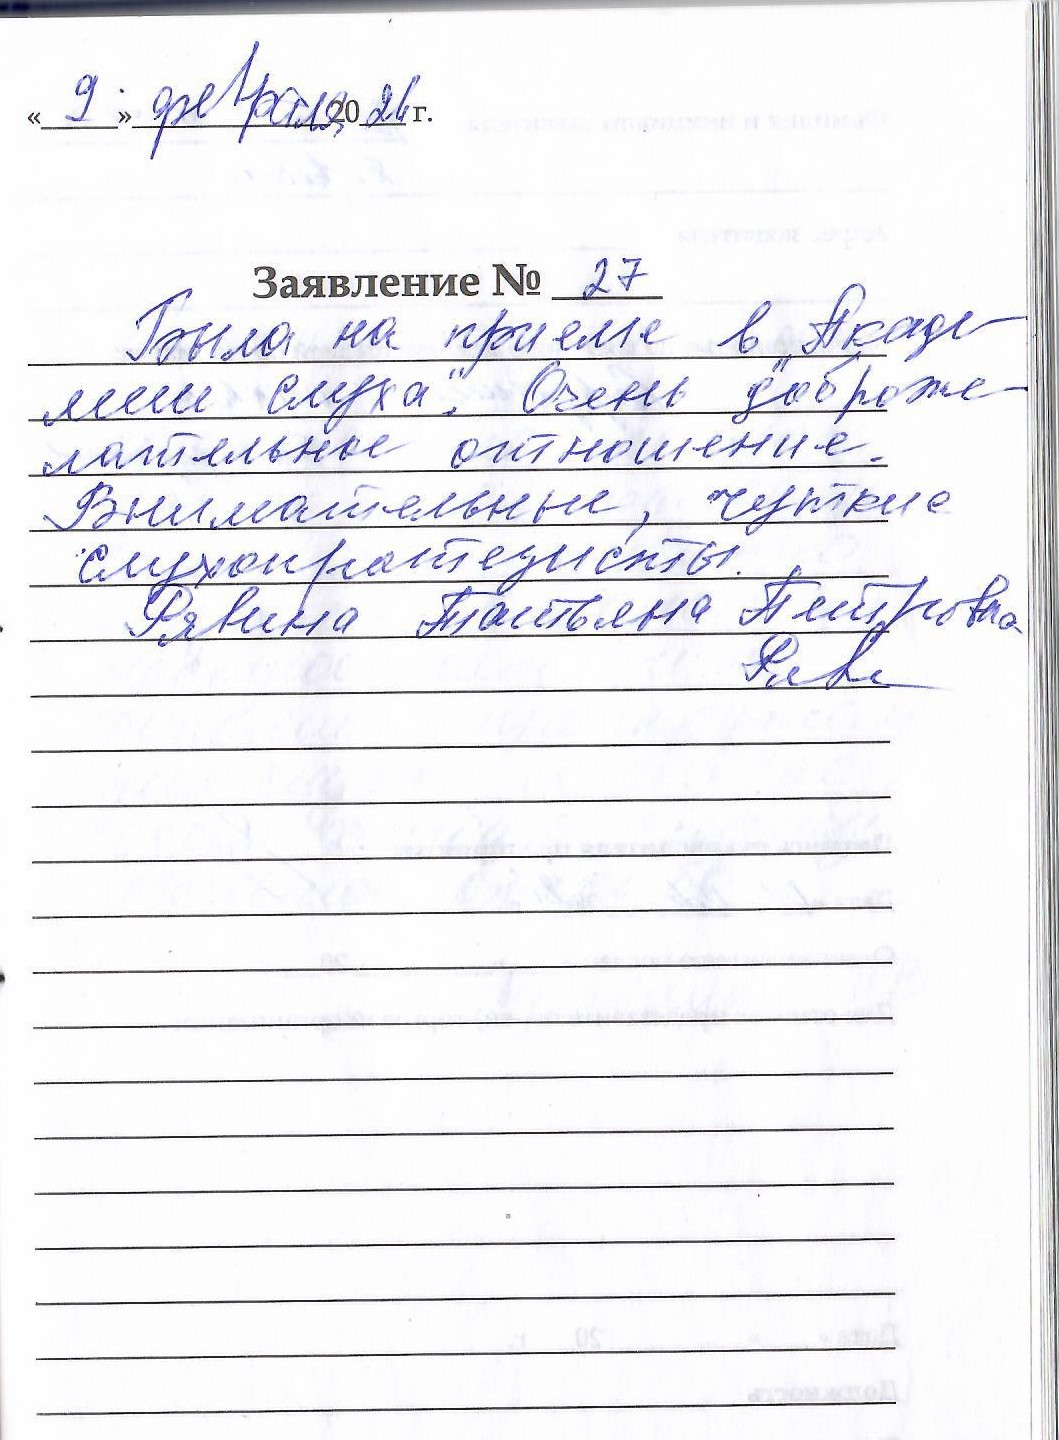 « 9 » февраля 2026 г.
Заявление № 27
Была на приеме в „Акаде-
мии слуха". Очень доброже-
лательное отношение.
Внимательные, чуткие
слухопротезисты.
Рявина Татьяна Петровна